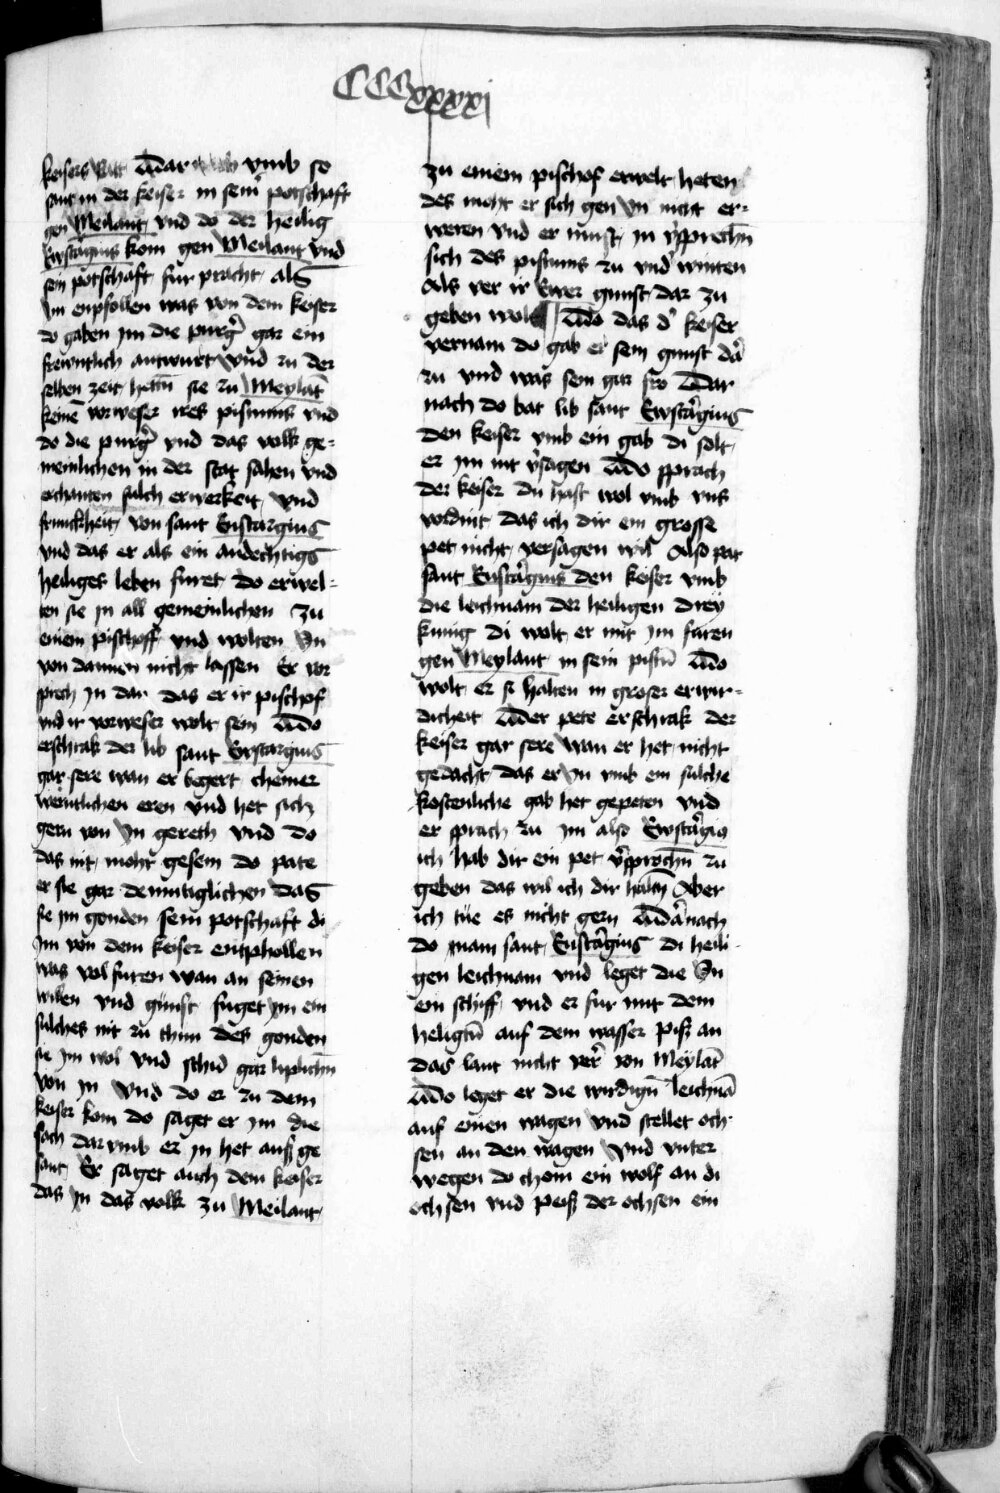 CCCxxxxi
keisers rat Dar nach vmb so
sant in der keiser in sein potschaft
gen Meilant vnd do der heilig
Ewstargius kom gen Meilant vnd
sein potschaft fur pracht als
im enpfollen was von dem keiser
do gaben im die purg̃ gar ein
frewntlich antwurt Vnd zu der
selben zeit hettñ sie zu Meylãt
keinẽ vorweser ires pistums vnd
do die purg̃ vnd das volk ge-
meinlichen in der stat sahen vnd
erchanten sulch erwerkeit vnd
frumkheit von sant Eustargius
vnd das er als ein andechtigs
heiliges leben furet do erwel-
ten sie in all gemeinlichen zu
einem pischoff vnd wolten Yn
von dannen nicht lassen Er vor
sprech in dar das er ir pischof
vnd ir vorweser wolt sein Do
erschrak der lib sant Ewstargius
gar sere wan er begert cheiner
werntlichen eren vnd het sich
gern von Yn gereth vnd do
das nit mocht gesein do pate
er sie gar demutiglichen das
sie im gonden sein potschaft di
Im von dem keiser entphollen
was vol furen wan an seinen
willen vnd gunst fuget im ein
sulches nit zu thun des gonden
sie im wol vnd schid gar liplichñ
von in Vnd do er zu dem
keiser kom do saget er im die
sach dar vmb er in het auß ge
sant Er saget auch dem keiser
das in das volk zu Meilant
zu einem pischof erwelt heten
des mocht er sich gen Yn nicht er-
weren vnd er must in v̾sprechñ
sich des pistums zu vnd̾winten
Als ver ir Ewer gunst dar zu
geben wolt Do das d̾ keiser
vernam do gab er sein gunst da̾
zu vnd was sein gar fro Dar
nach do bat lib sant Ewsta̾gius
den keiser vmb ein gab di solt
er im nit v̾sagen Do sprach
der keiser du hast wol vmb vns
vordint das ich dir ein grosse
pet nicht versagen wil Also pat
sant Eusta̾gius den keiser vmb
die leichnam der heiligen drey
kunig di wolt er mit im furen
gen Meylant in sein pistũ Do
wolt er si halten in groser erwir-
dicheit Der pete erschrak der
keiser gar sere wan er het nicht
gedacht das er Yn vmb ein sulche
kostenliche gab het gepeten vnd
er sprach zu im also Ewsta̾gio
ich hab dir ein pet v̾sprochñ zu
geben das wil ich dir haltñ Aber
ich tüe es nicht gern Da̾nach
do nam sant Eusta̾gius di heili-
gen leichnam vnd leget die Yn
ein schiff vnd er fur mit dem
heligtũ auf dem wasser piß an
das lant nicht ver̾ von Meylãt
Do leget er die wirdigñ leichnã
auf einen wagen vnd stellet och-
sen an den wagen Vnd vnter
wegen do chom ein wolf an di
ochsen vnd peiß der ochsen ein